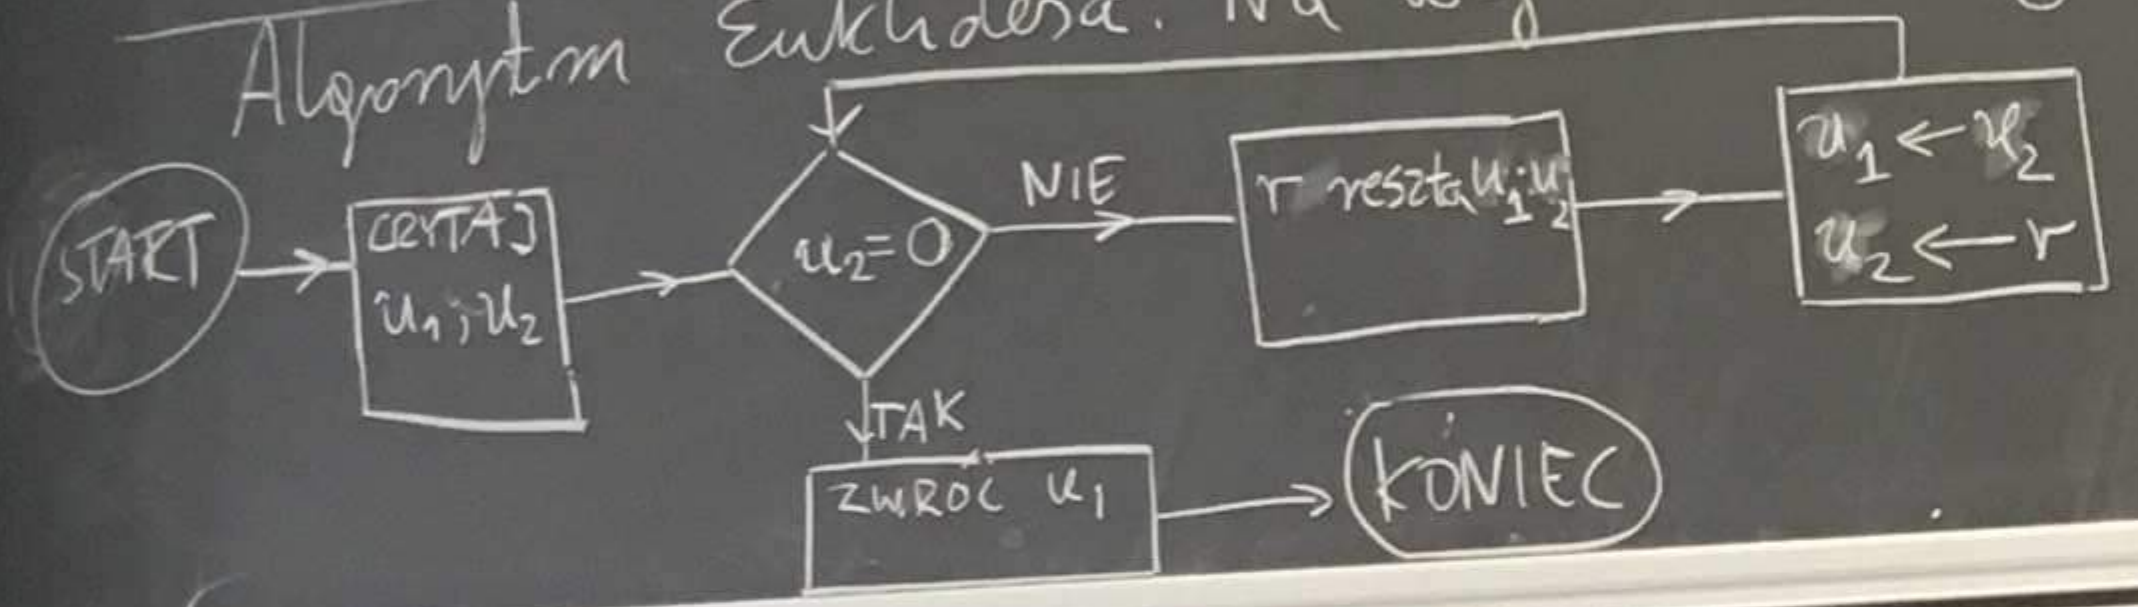 Algorytm Euklidesa. Na
START
CZYTAJ
u₁; u₂
u₂=0
NIE
r reszta u₁:u₂
u₁ ← u₂
u₂ ← r
TAK
ZWROC u₁
KONIEC